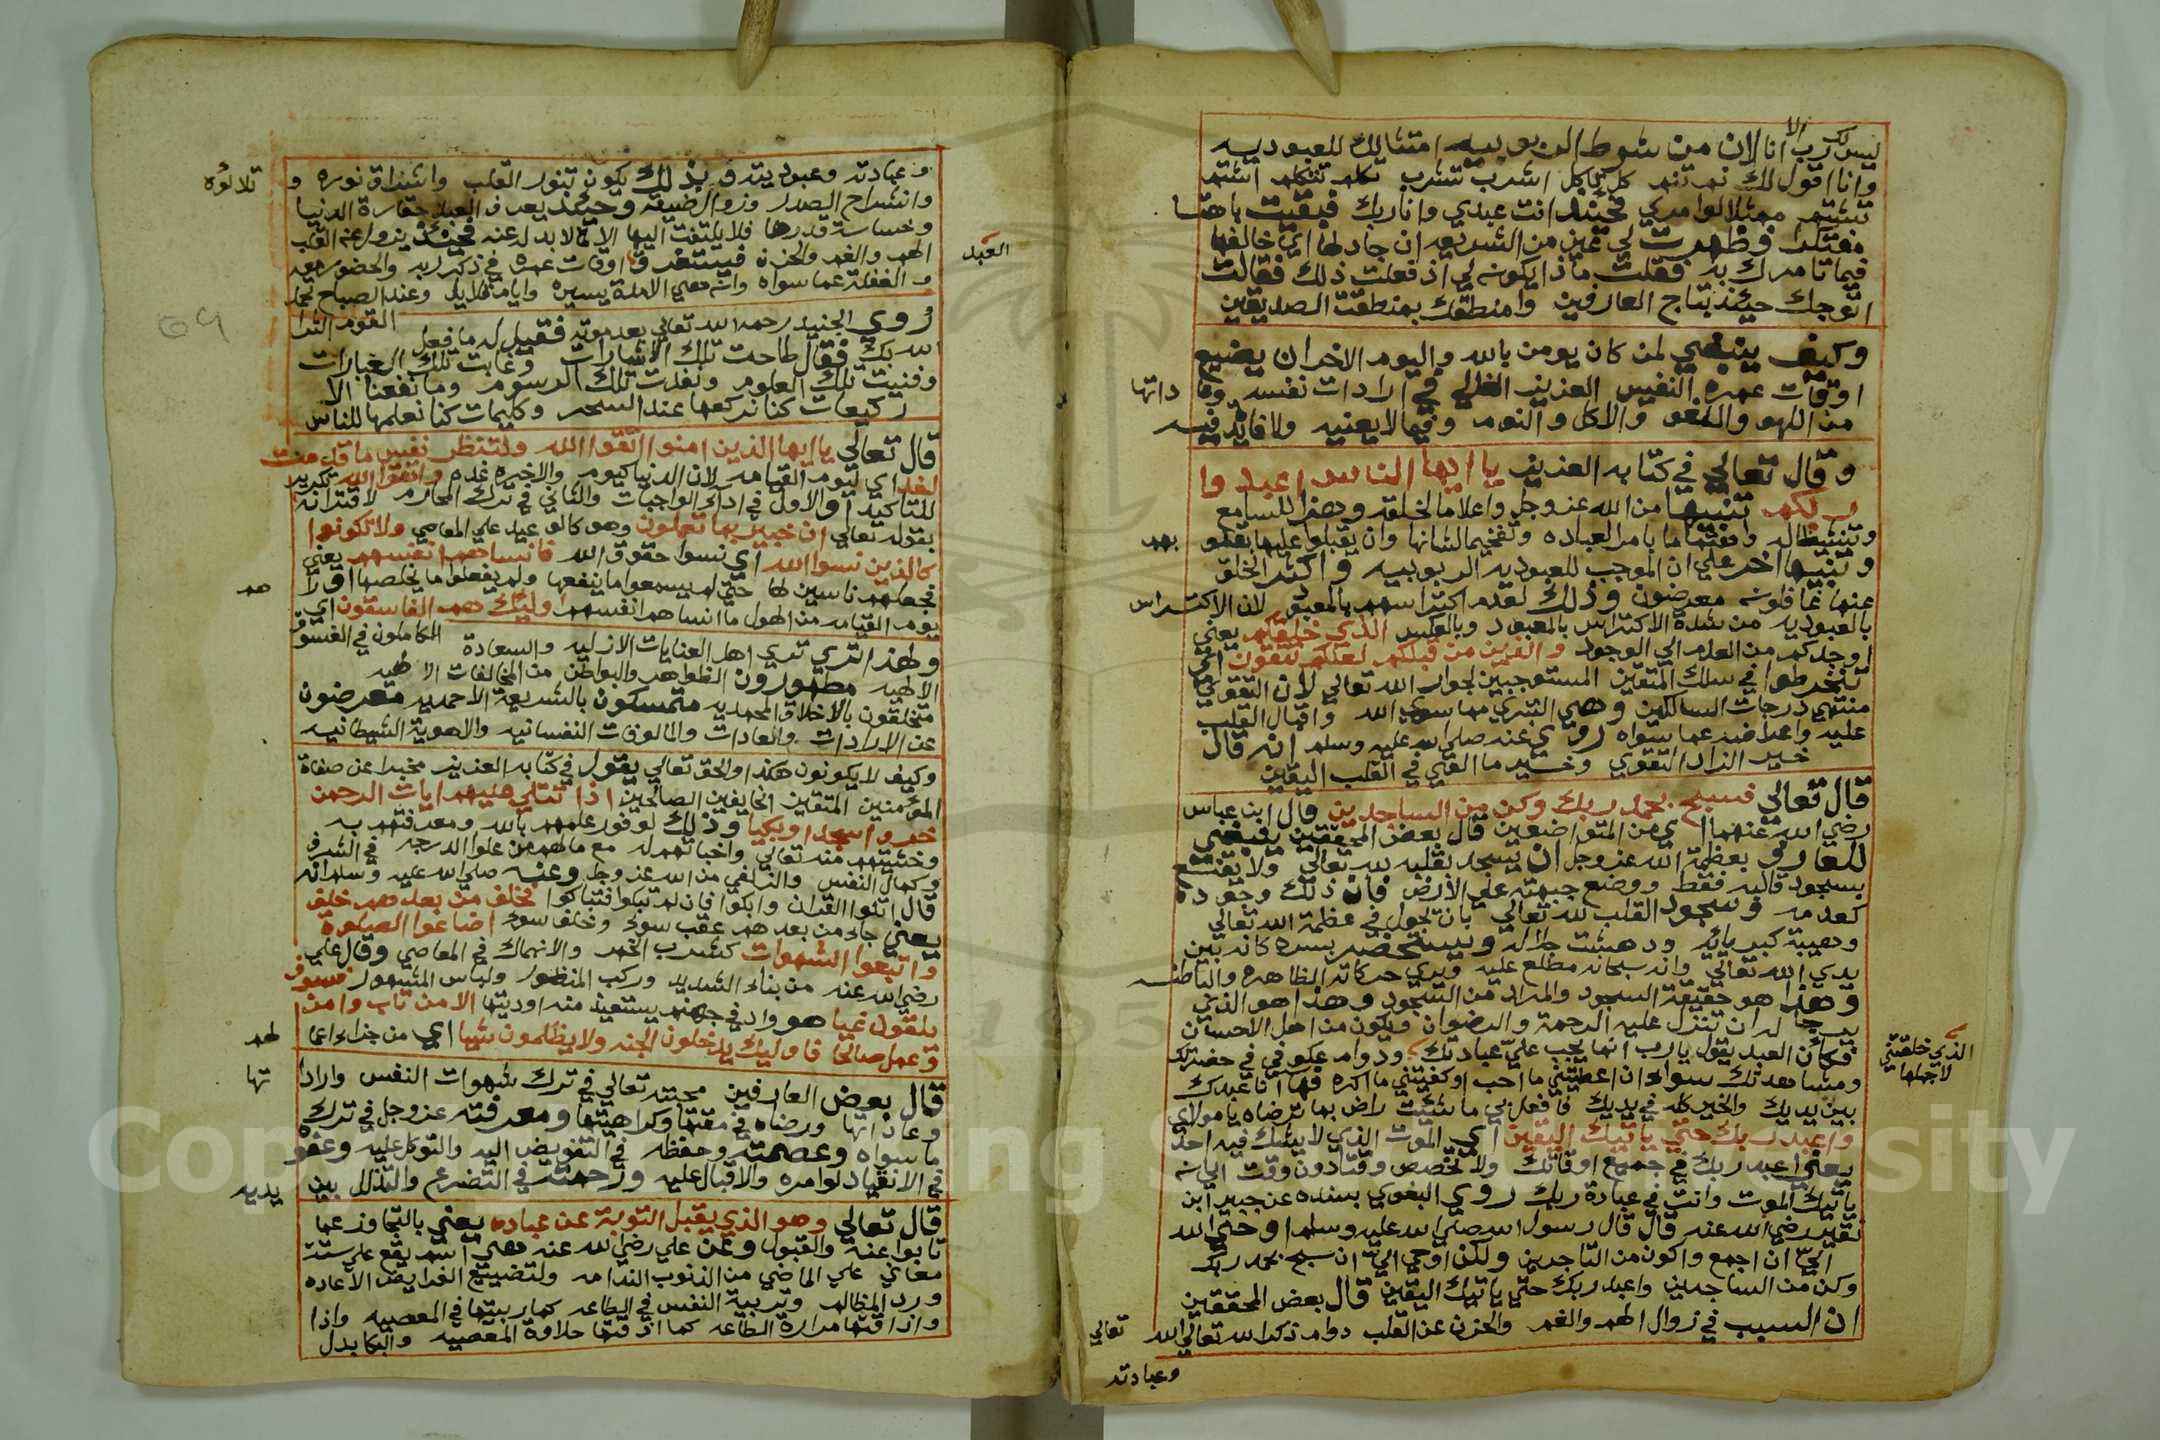 ليس لك رب الا انا لان من شوط الربوبيه امتثالك للعبوديه
وانا اقول لك نم تنم كل تاكل اشرب تشرب تكلم تتكلم اشتم
تشتم ممتثلا لوامري فحينئذ انت عبدي وانا ربك فبقيت باهتا
مفتكرا وظهرت لي عين من الشريعه ان جادلها اي خالفها
فيما تامرك به فقلت ماذا يكون لي اذ فعلت ذلك فقالت
اتوجك حينئذ بتاج العارفين وامنطقك بمنطقة الصديقين
وكيف ينبغي لمن كان يومن بالله واليوم الاخر ان يضيع
اوقات عمره النفيس العزيز الغالي في ارادات نفسه وعاداتها
من اللهو واللغو والاكل والنوم وفيما لا يعنيه ولا فايدة فيه
وقال تعالي في كتابه العزيز يا ايها الناس اعبدوا
ربكم تنبيها من الله عز وجل واعلاما لخلقه وهزا للسامع
وتنشيطا له واهتماما بامر العباده وتفخيما لشانها وان يقبلوا عليها بقلوبهم
وتنبيها اخر علي ان الموجب للعبوديه الربوبيه واكثر الخلق
عنها غافلون معرضون وذلك لعدم اكتراسهم بالمعبود لان الاكتراس
بالعبوديه من شدة الاكتراس بالمعبود وبالعكس الذي خلقكم يعني
اوجدكم من العدم الي الوجود والذين من قبلكم لعلكم تتقون اي
تنخرطوا في سلك المتقين المستوجبين لجوار الله تعالي لان التقوي
منتهي درجات السالكين وهي التبري مما سوي الله واقبال القلب
عليه واعراضه عما سواه روي عنه صلي الله عليه وسلم انه قال
خير الزاد التقوي وخير ما القي في القلب اليقين
قال تعالي فسبح بحمد ربك وكن من الساجدين قال ابن عباس
رضي الله عنهما اي من المتواضعين قال بعض المحققين ينبغي
للعارف بعظمة الله عز وجل ان يسجد بقلبه لله تعالي ولا يقتنع
بسجود قالبه فقط ووضع جبهته علي الارض فان ذلك وجوده
كعدمه وسجود القلب لله تعالي بان يجول في عظمة الله تعالي
وهيبة كبريائه ودهشت جلاله ويستحضر بسره كانه بين
يدي الله تعالي وانه سبحانه مطلع عليه ويري حركاته الظاهره والباطنه
وهذا هو حقيقة السجود والمراد من السجود وهذا هو الذي
يرجا له ان تنزل عليه الرحمة والرضوان ويكون من اهل الاحسان
فكأن العبد يقول يا رب انما يجب علي عبادتك ودوام عكوفي في حضرتك
الذي خلقتني
لاجلها
ومشاهدتك سواء ان اعطيتني ما احب او كفيتني ما اكره فها انا عبدك
بين يديك والخير كله في يديك فافعل بي ما شئت راض بما ترضاه يا مولاي
واعبد ربك حتي ياتيك اليقين اي الموت الذي لا يشك فيه احد
يعني اعبد ربك في جميع اوقاتك ولا تخصص وقتا دون وقت الي انه
ياتيك الموت وانت في عبادة ربك روي البغوي بسنده عن جبير ابن
نفير رضي الله عنه قال قال رسول الله صلي الله عليه وسلم ما اوحي الله
الي ان اجمع واكون من التاجرين ولكن اوحي الي ان سبح بحمد ربك
وكن من الساجدين واعبد ربك حتي ياتيك اليقين قال بعض المحققين
ان السبب في زوال الهم والغم والحزن عن القلب دوام ذكر الله تعالي
وعبادته
وعبادته وعبوديته وبذلك يكون تنور القلب واشراق نوره و تلألؤه
وانشراح الصدر وزوال ضيقه وحينئذ يعرف العبد حقارة الدنيا
وخساسة قدرها فلا يلتفت اليها الا لما لا بد له عنه فحينئذ يزول عنه القلب
العبد
الهم والغم والحزن فيستغرق اوقات عمره في ذكر ربه والحضور معه
والغفلة عما سواه وانه هي الا مدة يسيره وايام قلايل وعند الصباح يحمد
القوم السرا
روي الجنيد رحمه الله تعالي بعد موته فقيل له ما فعل
الله بك فقال طاحت تلك الاشارات وغابت تلك العبارات
وفنيت تلك العلوم ونفدت تلك الرسوم وما نفعنا الا
ركيعات كنا نركعها عند السحر وكليمات كنا نعلمها للناس
قال تعالي يا ايها الذين امنوا اتقوا الله ولتنظر نفس ما قدمت
لغد اي ليوم القيامه لان الدنيا كيوم والاخره غده واتقوا الله تكرير
للتاكيد او الاول في اداء الواجبات والثاني في ترك المحارم لاقترانه
بقوله تعالي ان خبير بما تعملون وهو كالوعيد علي المعاصي ولا تكونوا
كالذين نسوا الله اي نسوا حقوق الله فانساهم انفسهم يعني
فجعلهم ناسين لها حتي لم يسمعوا ما ينفعها ولم يفعلوا ما يخلصها او راهم
يوم القيامه من الهول ما انساهم انفسهم اوليك هم الفاسقون اي
الكاملون في الفسق
ولهذا تري اهل العنايات الازليه والسعادة
الالهيه مطهورون الظواهر والبواطن من المخالفات الالهيه
متخلقون بالاخلاق المحمديه متمسكون بالشريعة الاحمديه معرضون
عن الارادات والعادات والمالوفات النفسانيه والاهوية الشيطانيه
وكيف لا يكونون هكذا والحق تعالي يقول في كتابه العزيز مخبرا عن صفاة
المؤمنين المتقين الخايفين الصالحين اذا تتلي عليهم ايات الرحمن
خروا سجدا وبكيا وذلك لوفور علمهم بالله ومعرفتهم به
وخشيتهم منه تعالي واخباتهم له مع مالهم من علو الدرجه في الشرف
وكمال النفس والزلفي من الله عز وجل وعنه صلي الله عليه وسلم انه
قال اتلوا القران وابكوا فان لم تبكوا فتباكوا فخلف من بعدهم خلف
يعني جاء من بعدهم عقب سوء وخلف سوء اضاعوا الصلوة
واتبعوا الشهوات كشرب الخمر والانهماك في المعاصي وقال علي
رضي الله عنه من بناء الشديد وركب المنظور ولباس المشهور فسوف
يلقون غيا هو واد في جهنم يستعيذ منه اوديتها الا من تاب وامن
وعمل صالحا فاوليك يدخلون الجنه ولا يظلمون شيا اي من جزاء اعمالهم
قال بعض العارفين محبته تعالي في ترك شهوات النفس وارادتها
وعاداتها ورضاه في مقتها وكراهيتها ومعرفته عز وجل في ترك
ما سواه وعصمته وحفظه في التفويض اليه والتوكل عليه وعفوه
في الانقياد لوامره والاقبال عليه ورحمته في التضرع والتذلل بين يديه
قال تعالي وهو الذي يقبل التوبة عن عباده يعني بالتجاوز عما
تابوا عنه والقبول وعن علي رضي الله عنه هي اسم يقع علي ستة
معاني علي الماضي من الذنوب الندامه ولتضييع الفرايض الاعاده
ورد المظالم وتربية النفس في الطاعه كما ربيتها في المعصيه واذا
واذاقتها مرارة الطاعه كما اذقتها حلاوة المعصيه والبكا بدل